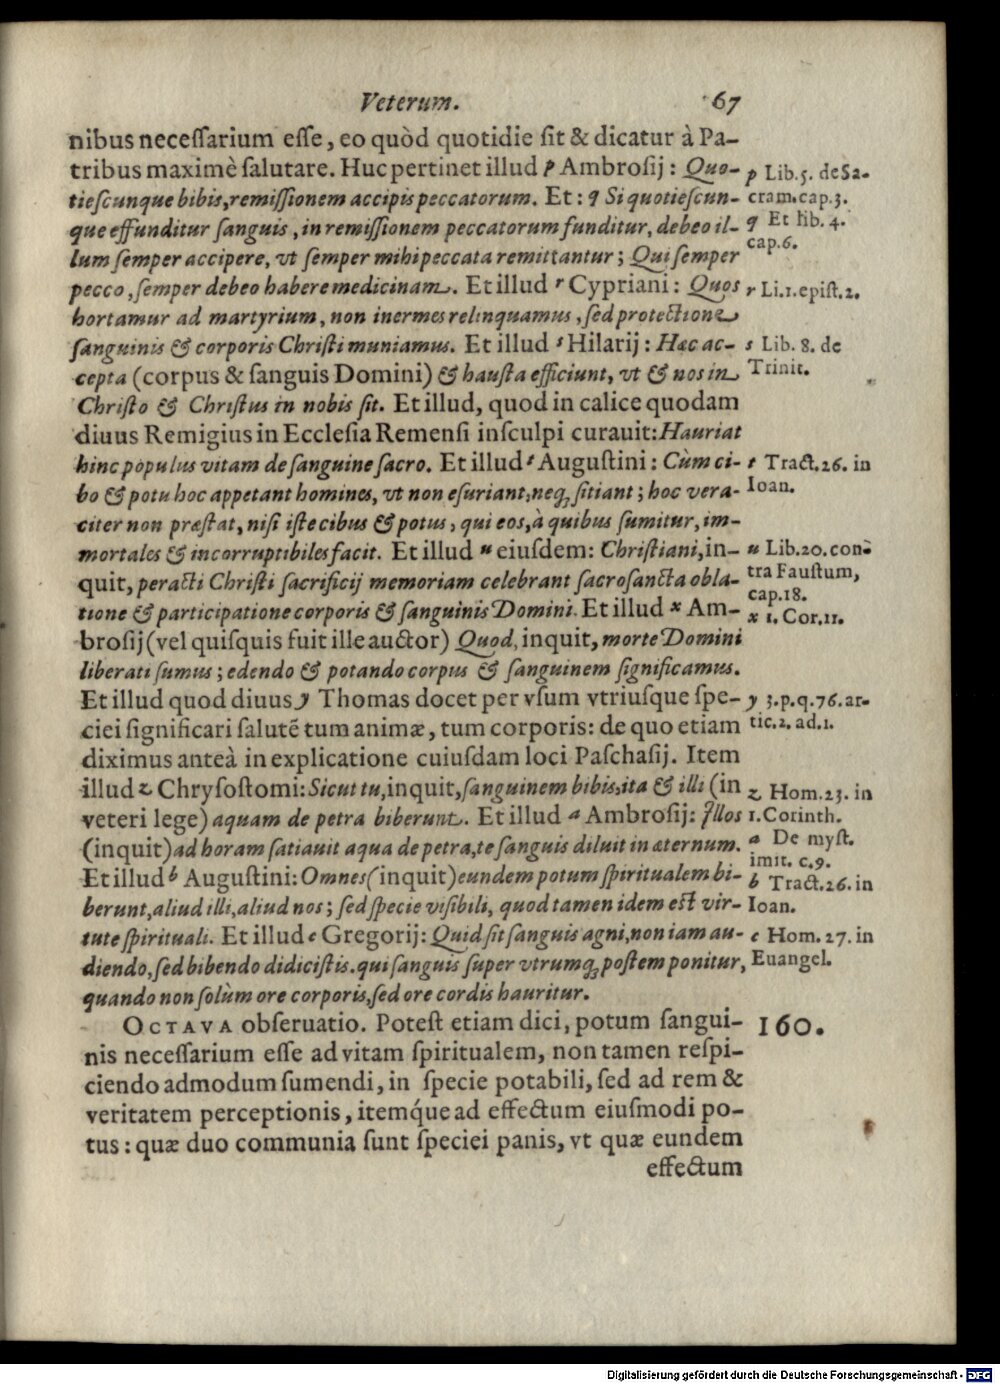 Veterum. 67
nibus neceſſarium eſſe, eo quòd quotidie ſit & dicatur à Pa-
tribus maximè ſalutare. Huc pertinet illud p Ambroſij: Quo-
tieſcunque bibis, remiſſionem accipis peccatorum. Et: q Si quotieſcun-
que effunditur ſanguis, in remiſſionem peccatorum funditur, debeo il-
lum ſemper accipere, vt ſemper mihi peccata remittantur; Qui ſemper
pecco, ſemper debeo habere medicinam. Et illud r Cypriani: Quos
hortamur ad martyrium, non inermes relinquamus, ſed protectione
ſanguinis & corporis Chriſti muniamus. Et illud s Hilarij: Hæc ac-
cepta (corpus & ſanguis Domini) & hauſta efficiunt, vt & nos in
Chriſto & Chriſtus in nobis ſit. Et illud, quod in calice quodam
diuus Remigius in Eccleſia Remenſi inſculpi curauit: Hauriat
hinc populus vitam de ſanguine ſacro. Et illud t Auguſtini: Cùm ci-
bo & potu hoc appetant homines, vt non eſuriant, neq; ſitiant; hoc vera-
citer non præſtat, niſi iſte cibus & potus, qui eos, à quibus ſumitur, im-
mortales & incorruptibiles facit. Et illud u eiuſdem: Chriſtiani, in-
quit, peracti Chriſti ſacrificij memoriam celebrant ſacroſancta obla-
tione & participatione corporis & ſanguinis Domini. Et illud x Am-
broſij (vel quiſquis fuit ille auctor) Quod, inquit, morte Domini
liberati ſumus; edendo & potando corpus & ſanguinem ſignificamus.
Et illud quod diuus y Thomas docet per vſum vtriuſque ſpe-
ciei ſignificari ſalutē tum animæ, tum corporis: de quo etiam
diximus anteà in explicatione cuiuſdam loci Paſchaſij. Item
illud z Chryſoſtomi: Sicut tu, inquit, ſanguinem bibis, ita & illi (in
veteri lege) aquam de petra biberunt. Et illud a Ambroſij: Illos
(inquit) ad horam ſatiauit aqua de petra, te ſanguis diluit in æternum.
Et illud b Auguſtini: Omnes (inquit) eundem potum ſpiritualem bi-
berunt, aliud illi, aliud nos; ſed ſpecie viſibili, quod tamen idem eſt vir-
tute ſpirituali. Et illud c Gregorij: Quid ſit ſanguis agni, non iam au-
diendo, ſed bibendo didiciſtis. qui ſanguis ſuper vtrumq; poſtem ponitur,
quando non ſolùm ore corporis, ſed ore cordis hauritur.
OCTAVA obſeruatio. Poteſt etiam dici, potum ſangui-
nis neceſſarium eſſe ad vitam ſpiritualem, non tamen reſpi-
ciendo admodum ſumendi, in ſpecie potabili, ſed ad rem &
veritatem perceptionis, itemq́ue ad effectum eiuſmodi po-
tus: quæ duo communia ſunt ſpeciei panis, vt quæ eundem
effectum
p Lib. 5. de Sa-
cram. cap. 3.
q Et lib. 4.
cap. 6.
r Li. 1. epiſt. 2.
s Lib. 8. de
Trinit.
t Tract. 26. in
Ioan.
u Lib. 20. con-
tra Fauſtum,
cap. 18.
x 1. Cor. 11.
y 3. p. q. 76. ar-
tic. 2. ad. 1.
z Hom. 23. in
1. Corinth.
a De myſt.
imit. c. 9.
b Tract. 26. in
Ioan.
c Hom. 27. in
Euangel.
160.
Digitalisierung gefördert durch die Deutsche Forschungsgemeinschaft - DFG